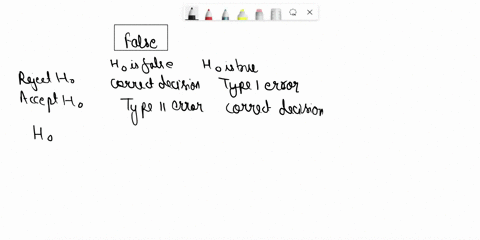 False
H₀ is false H₀ is true
Reject H₀ Correct decision Type I error
Accept H₀ Type II error correct decision
H₀